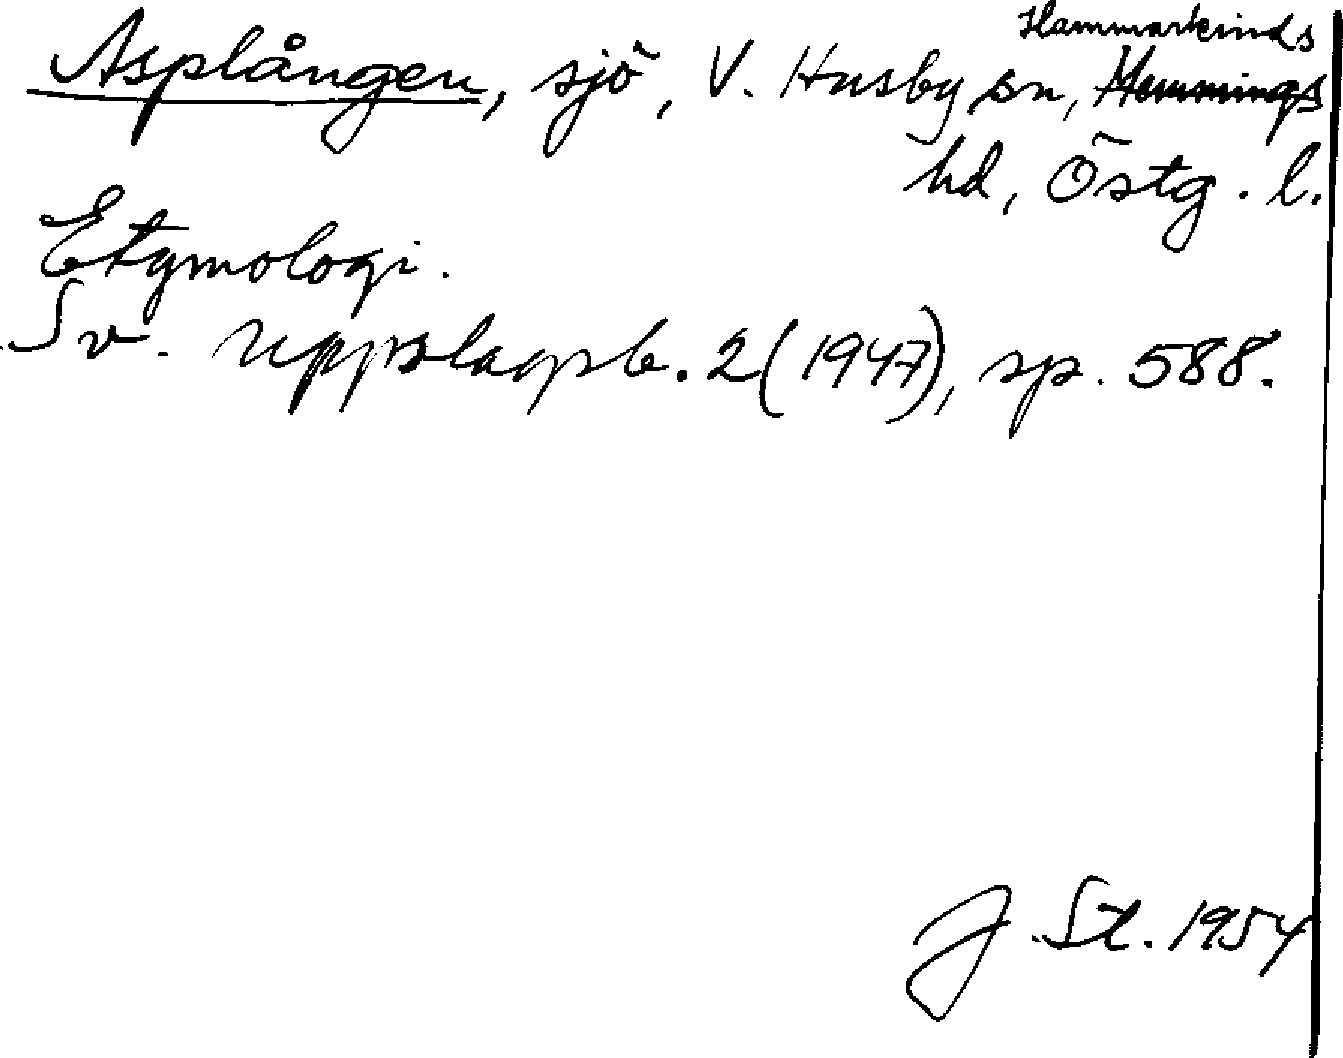 Hammarkinds
Asplången, sjö, V. Husby sn, Hemmings
hd, Östg. l.
Etymologi.
Sv. uppslagsb. 2 (1947), sp. 588.
J. St. 1954